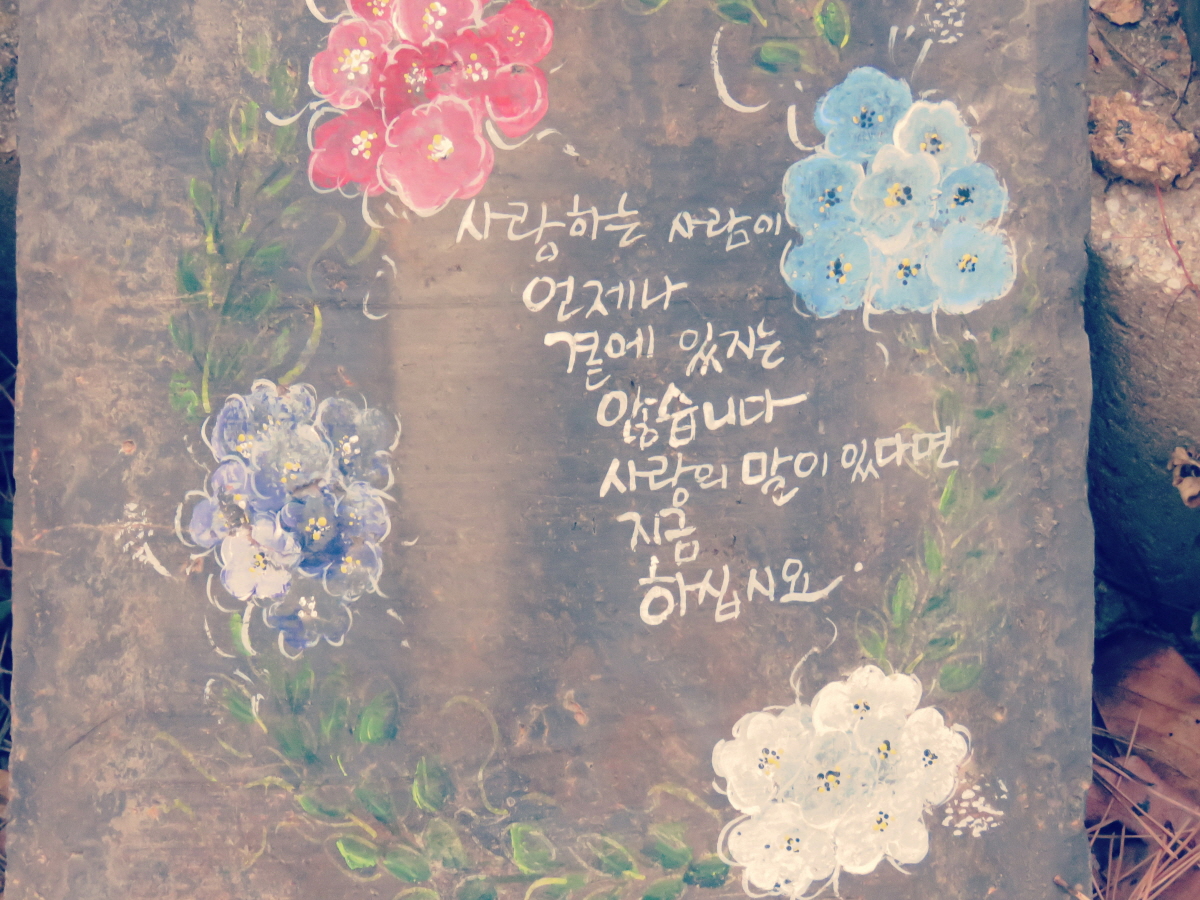 사랑하는 사람이
언제나
곁에 있지는
않습니다
사랑의 말이 있다면
지금
하십시요.